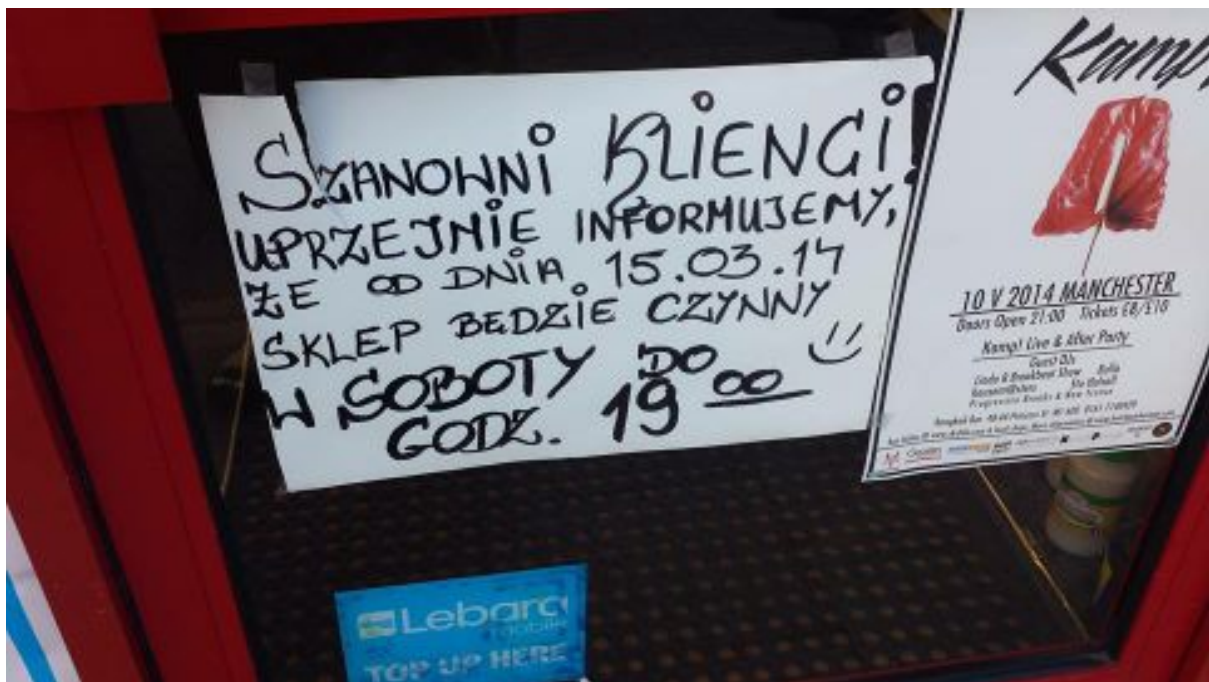 SZANOWNI KLIENCI!
UPRZEJMIE INFORMUJEMY,
ŻE OD DNIA 15.03.14
SKLEP BĘDZIE CZYNNY
W SOBOTY DO
GODZ. 19 00
Kamp!
10 V 2014 MANCHESTER
Doors Open 21:00 Tickets £8/£10
Kamp! Live & After Party
Guest DJs
Lebara
mobile
TOP UP HERE